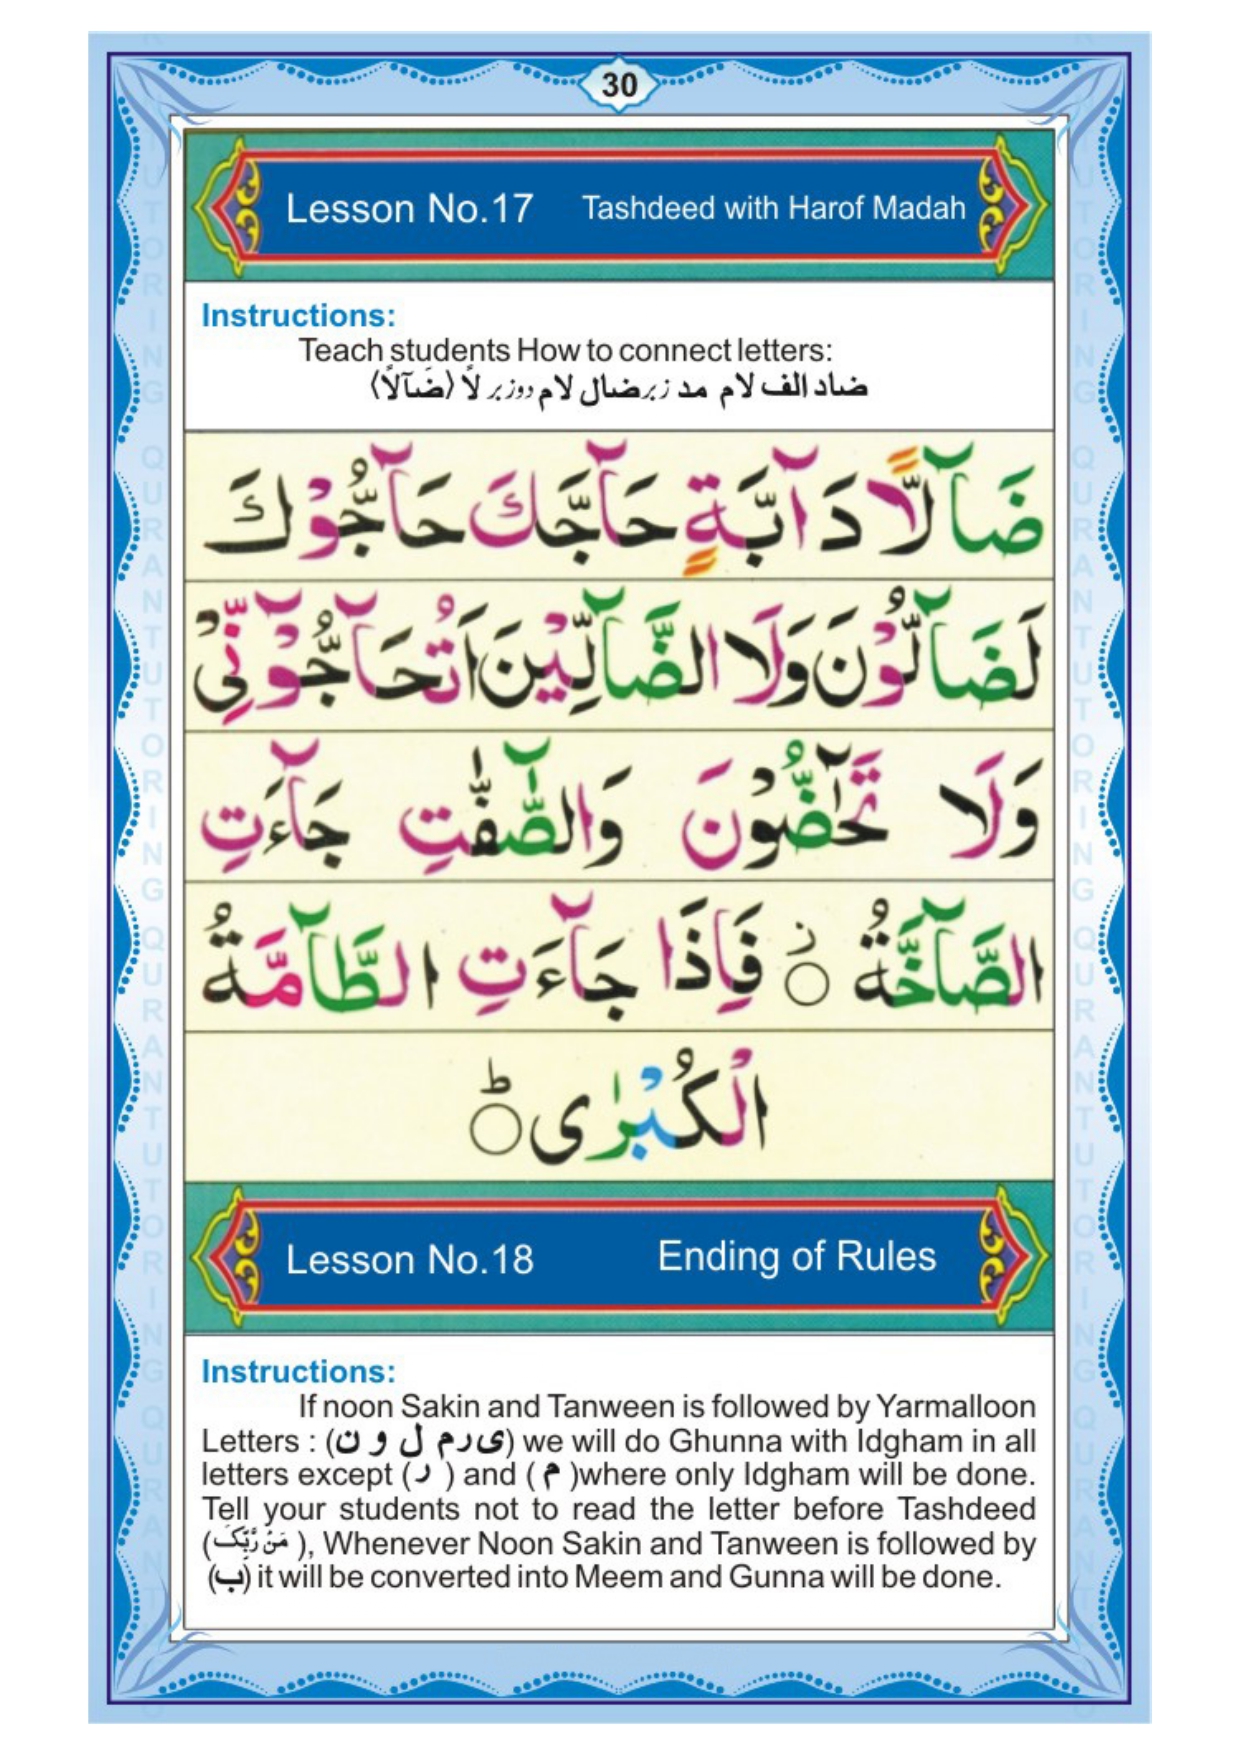 30
Lesson No.17 Tashdeed with Harof Madah
Instructions:
Teach students How to connect letters:
ضاد الف لام مد زبر ضال لام دوزبر لاً (ضَآلاً)
ضَآلًّا دَآبَّةٍ حَآجَّكَ حَآجُّوْكَ
لَضَآلُّوْنَ وَلَا الضَّآلِّيْنَ اَتُحَآجُّوْنِّىْ
وَلَا تَحٰٓضُّوْنَ وَالصّٰٓفّٰتِ جَآءَتِ
الصَّآخَّةُ ۝ ز فَاِذَا جَآءَتِ الطَّآمَّةُ
الْكُبْرٰى ۝ ط
Lesson No.18 Ending of Rules
Instructions:
If noon Sakin and Tanween is followed by Yarmalloon
Letters : (ى ر م ل و ن) we will do Ghunna with Idgham in all
letters except ( ر ) and ( م )where only Idgham will be done.
Tell your students not to read the letter before Tashdeed
(مَنْ رَّبِّكَ ), Whenever Noon Sakin and Tanween is followed by
(ب) it will be converted into Meem and Gunna will be done.
QURAN TUTORING